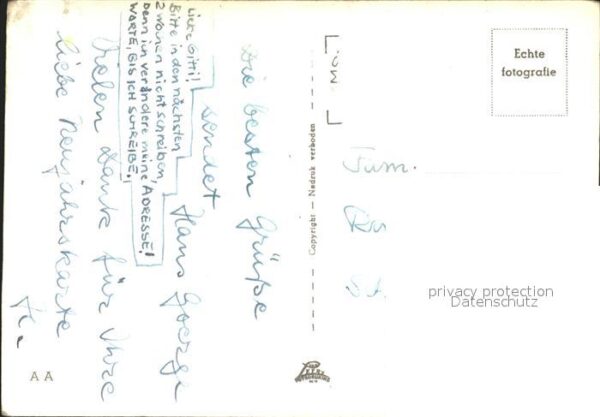 Die besten Grüße
sendet
Hans Goerge
Liebe Gitti!
Bitte in den nächsten
2 Wochen nicht schreiben,
denn ich verändere meine ADRESSE!
WARTE, BIS ICH SCHREIBE.
Vielen Dank für Ihre
liebe Neujahrskarte
H.
Copyright — Nadruk verboden
Echte
fotografie
privacy protection
Datenschutz
A A